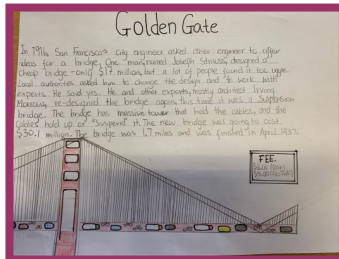 Golden Gate
In 1916 San Francisco's City engineer asked other engineer to offer
ideas for a bridge. One man, named Joseph Strauss, designed a
Cheap bridge - only $17 million, but a lot of people found it too ugly.
Local authorities asked him to change the design and to work with
experts. He said yes. He and other experts, mostly architect Irving
Morrow, re-designed the bridge again, this time it was a Suspension
bridge. The bridge has massive tower that hold the cables, and the
cables hold up or "suspend" it. The new bridge was going to cost
$30.1 million. The bridge was 1.7 miles and was finished in April 1937.
FEE.